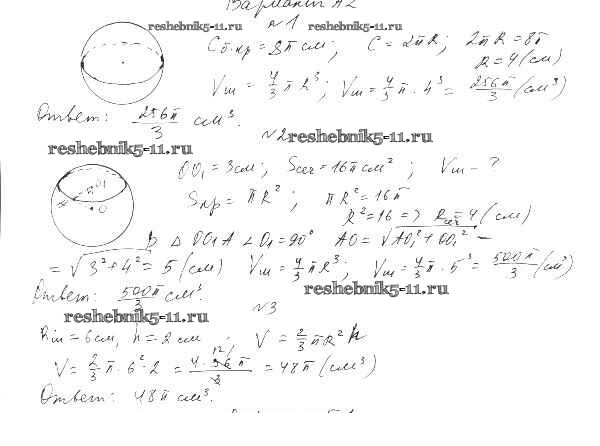 Вариант А2
№1
reshebnik5-11.ru reshebnik5-11.ru
C б.кр = 8π см; C = 2πR; 2πR = 8π
R = 4 (см)
Vш = 4/3 πR³; Vш = 4/3 π · 4³ = 256π/3 (см³)
Ответ: 256π/3 см³.
№2
reshebnik5-11.ru
reshebnik5-11.ru
OO₁ = 3 см; Sсеч = 16π см²; Vш - ?
Sкр = πR²; πR² = 16π
R² = 16 => Rсеч = 4 (см)
В △ OO1A ∠O₁ = 90° AO = √AO₁² + OO₁² =
= √3² + 4² = 5 (см) Vш = 4/3 πR³; Vш = 4/3 π · 5³ = 500π/3 (см³)
reshebnik5-11.ru
Ответ: 500π/3 см³.
№3
reshebnik5-11.ru
Rш = 6 см, h = 2 см; V = 2/3 πR² h
V = 2/3 π · 6² · 2 = 4 · 36π/3 12 = 48π (см³)
Ответ: 48π см³.